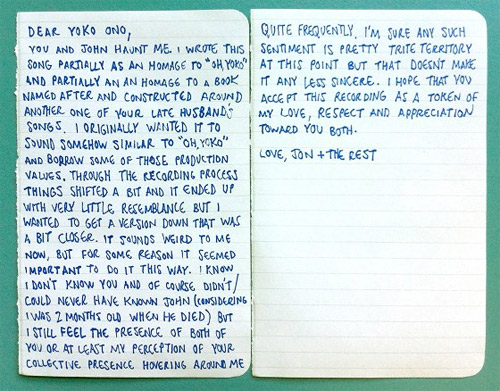 DEAR YOKO ONO,
YOU AND JOHN HAUNT ME. I WROTE THIS
SONG PARTIALLY AS AN HOMAGE TO "OH, YOKO"
AND PARTIALLY AN AN HOMAGE TO A BOOK
NAMED AFTER AND CONSTRUCTED AROUND
ANOTHER ONE OF YOUR LATE HUSBAND'S
SONGS. I ORIGINALLY WANTED IT TO
SOUND SOMEHOW SIMILAR TO "OH, YOKO"
AND BORROW SOME OF THOSE PRODUCTION
VALUES. THROUGH THE RECORDING PROCESS
THINGS SHIFTED A BIT AND IT ENDED UP
WITH VERY LITTLE RESEMBLANCE BUT I
WANTED TO GET A VERSION DOWN THAT WAS
A BIT CLOSER. IT SOUNDS WEIRD TO ME
NOW, BUT FOR SOME REASON IT SEEMED
IMPORTANT TO DO IT THIS WAY. I KNOW
I DON'T KNOW YOU AND OF COURSE DIDN'T/
COULD NEVER HAVE KNOWN JOHN (CONSIDERING
I WAS 2 MONTHS OLD WHEN HE DIED) BUT
I STILL FEEL THE PRESENCE OF BOTH OF
YOU OR AT LEAST MY PERCEPTION OF YOUR
COLLECTIVE PRESENCE HOVERING AROUND ME
QUITE FREQUENTLY. I'M SURE ANY SUCH
SENTIMENT IS PRETTY TRITE TERRITORY
AT THIS POINT BUT THAT DOESN'T MAKE
IT ANY LESS SINCERE. I HOPE THAT YOU
ACCEPT THIS RECORDING AS A TOKEN OF
MY LOVE, RESPECT AND APPRECIATION
TOWARD YOU BOTH.
LOVE, JON + THE REST